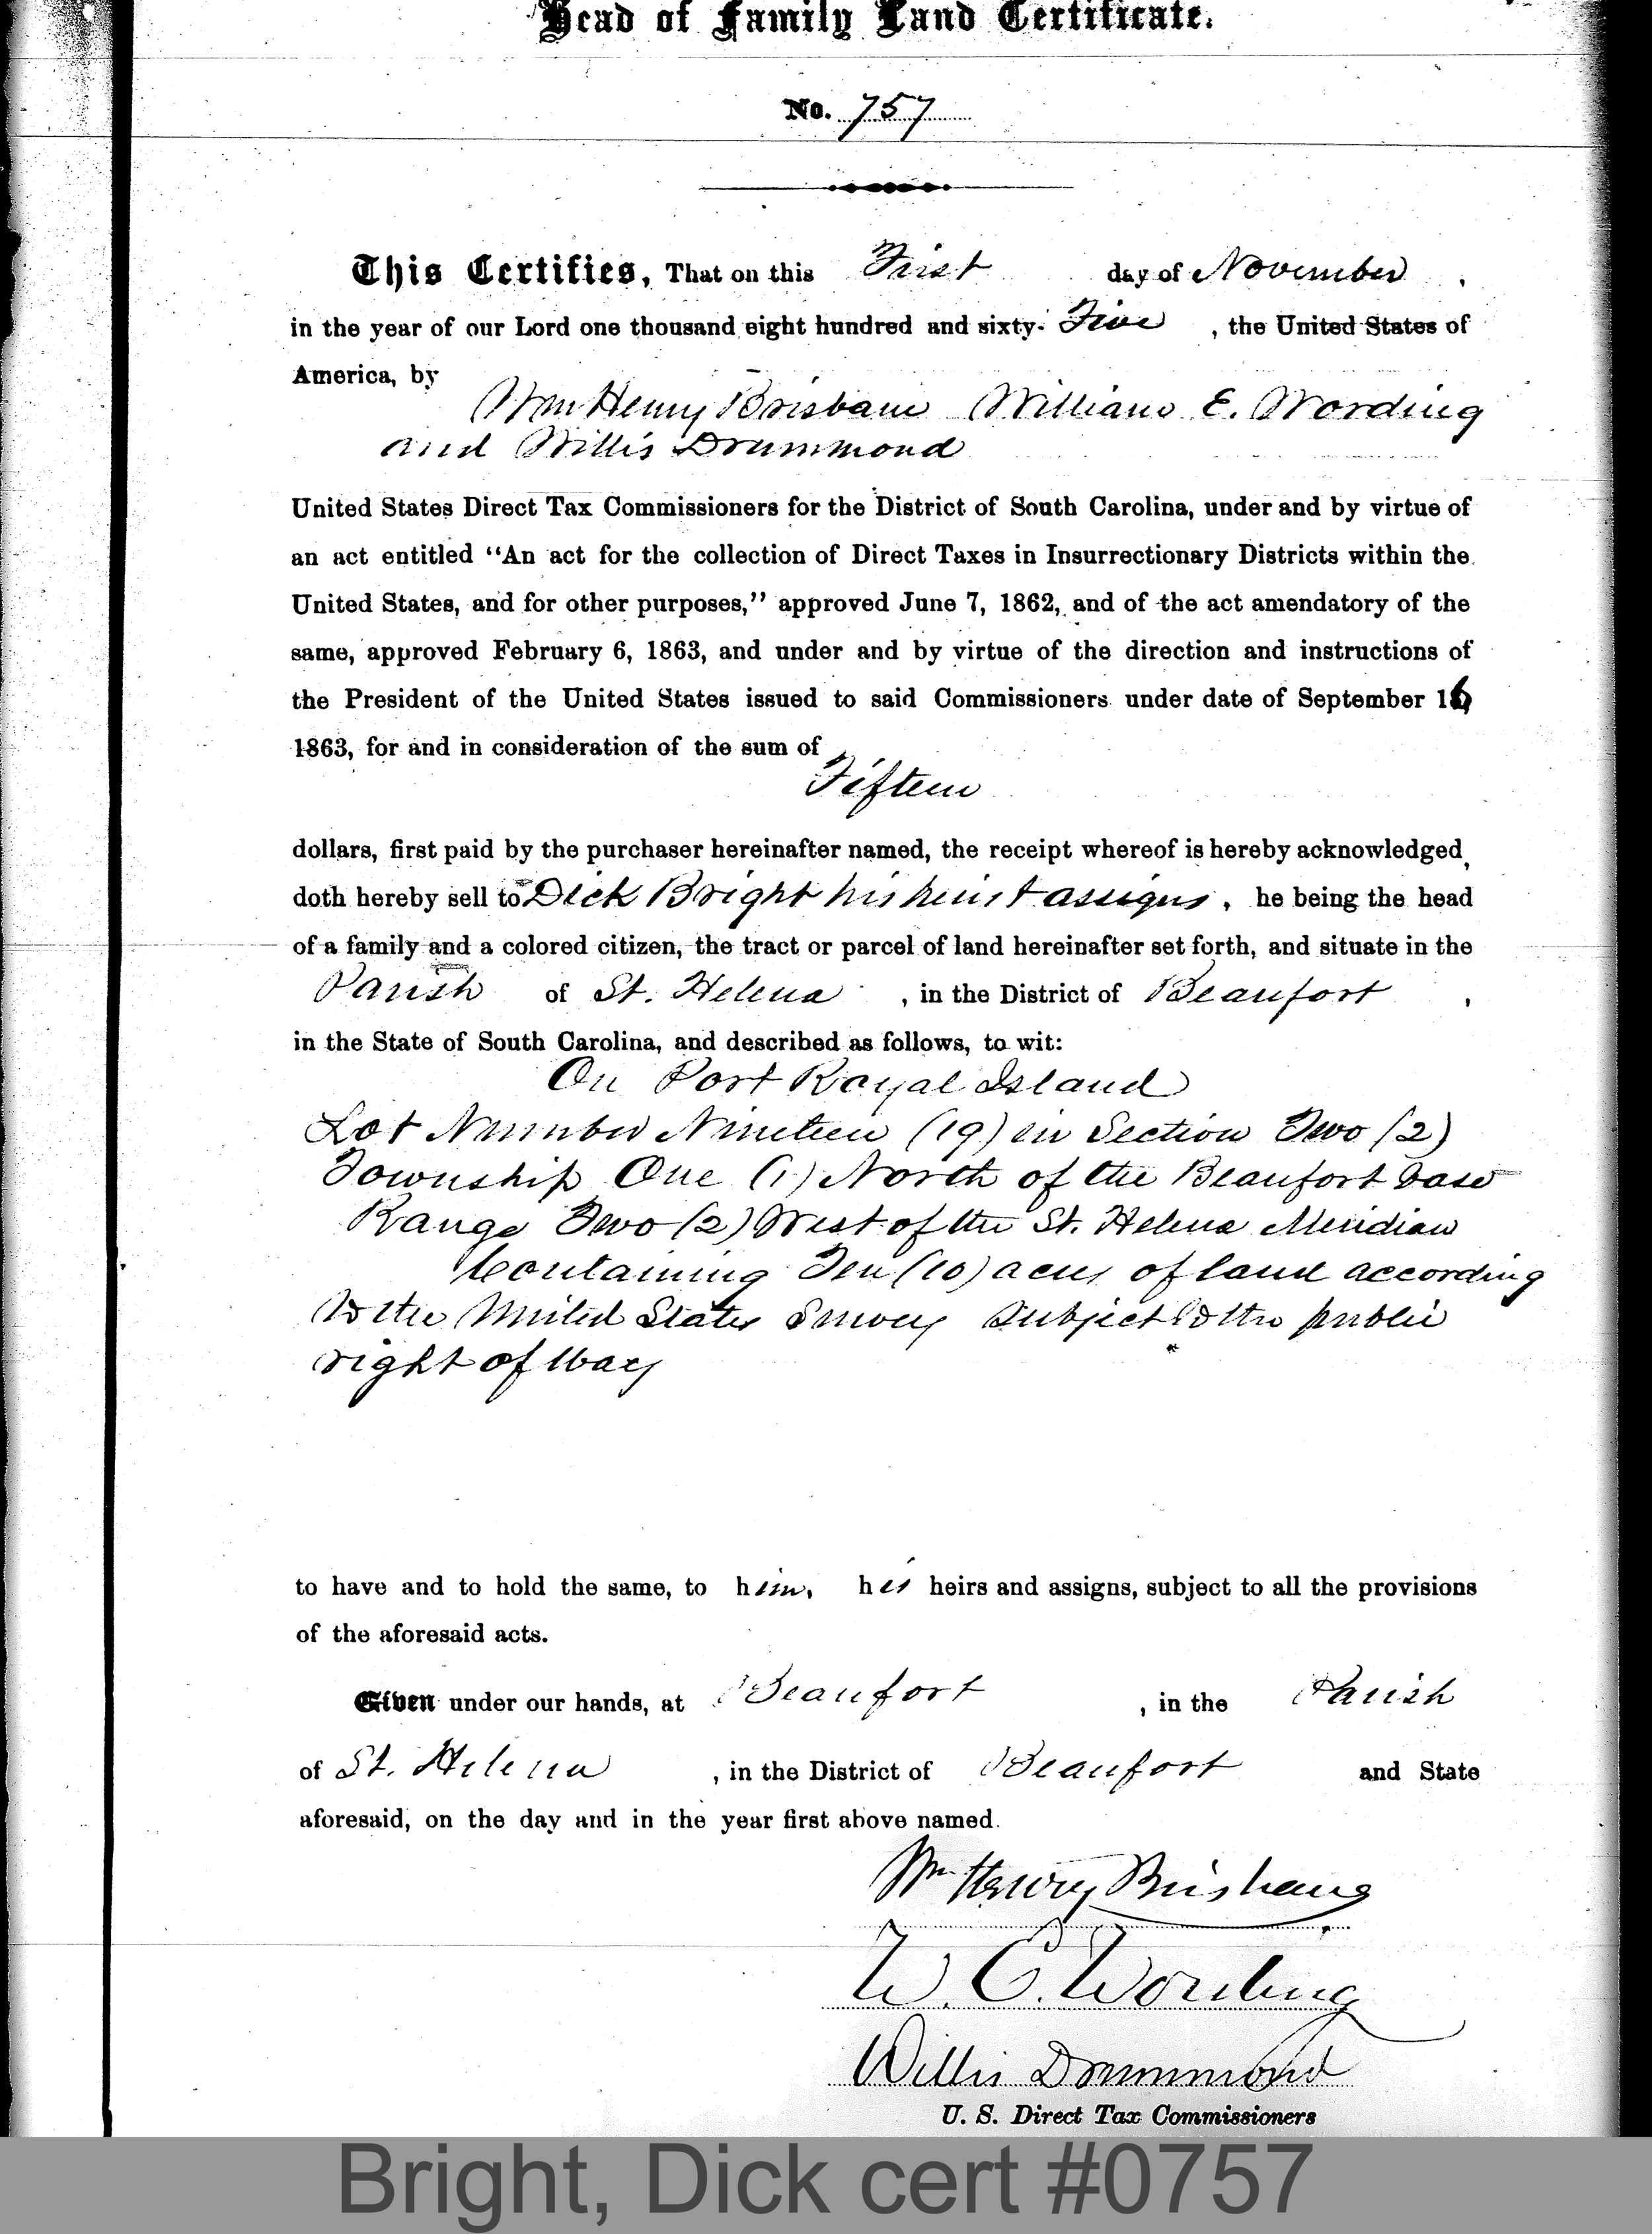 Head of Family Land Certificate.
No. 757
This Certifies, That on this First day of November,
in the year of our Lord one thousand eight hundred and sixty-Five, the United States of
America, by
Wm Henry Brisbane William E. Wording
and Willis Drummond
United States Direct Tax Commissioners for the District of South Carolina, under and by virtue of
an act entitled “An act for the collection of Direct Taxes in Insurrectionary Districts within the
United States, and for other purposes,” approved June 7, 1862, and of the act amendatory of the
same, approved February 6, 1863, and under and by virtue of the direction and instructions of
the President of the United States issued to said Commissioners under date of September 16
1863, for and in consideration of the sum of
Fifteen
dollars, first paid by the purchaser hereinafter named, the receipt whereof is hereby acknowledged,
doth hereby sell to Dick Bright his heirs & assigns, he being the head
of a family and a colored citizen, the tract or parcel of land hereinafter set forth, and situate in the
Parish of St. Helena, in the District of Beaufort,
in the State of South Carolina, and described as follows, to wit:
On Port Royal Island
Lot Number Nineteen (19) in Section Two (2)
Township One (1) North of the Beaufort base
Range Two (2) West of the St. Helena Meridian
Containing Ten (10) acres of land according
to the United States Survey subject to the public
right of way
to have and to hold the same, to him, his heirs and assigns, subject to all the provisions
of the aforesaid acts.
Given under our hands, at Beaufort, in the Parish
of St. Helena, in the District of Beaufort and State
aforesaid, on the day and in the year first above named.
Wm Henry Brisbane
W. E. Wording
Willis Drummond
U. S. Direct Tax Commissioners
Bright, Dick cert #0757